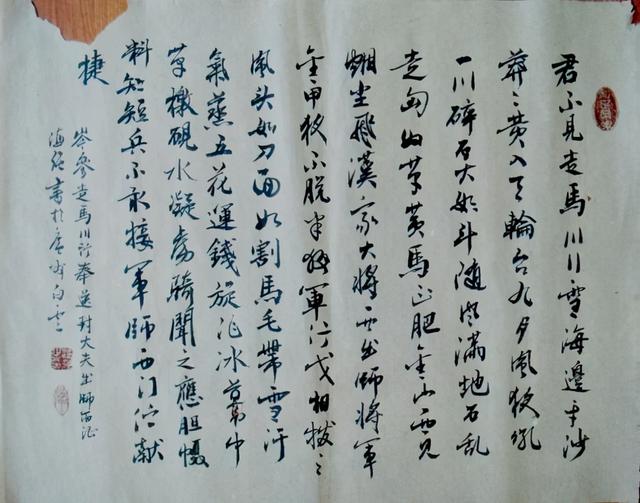 君不見走馬川行雪海邊平沙
莽〻黃入天輪台九月風夜吼
一川碎石大如斗隨風滿地石亂
走匈奴草黃馬正肥金山西見
烟塵飛漢家大將西出師將軍
金甲夜不脫半夜軍行戈相撥〻
風头如刀面如割馬毛帶雪汗
氣蒸五花連錢旋作冰幕中
草檄硯水凝虜騎聞之應胆懾
料知短兵不敢接軍師西门佇献
捷
岑參走馬川行奉送封大夫出師西征
海書於白雲